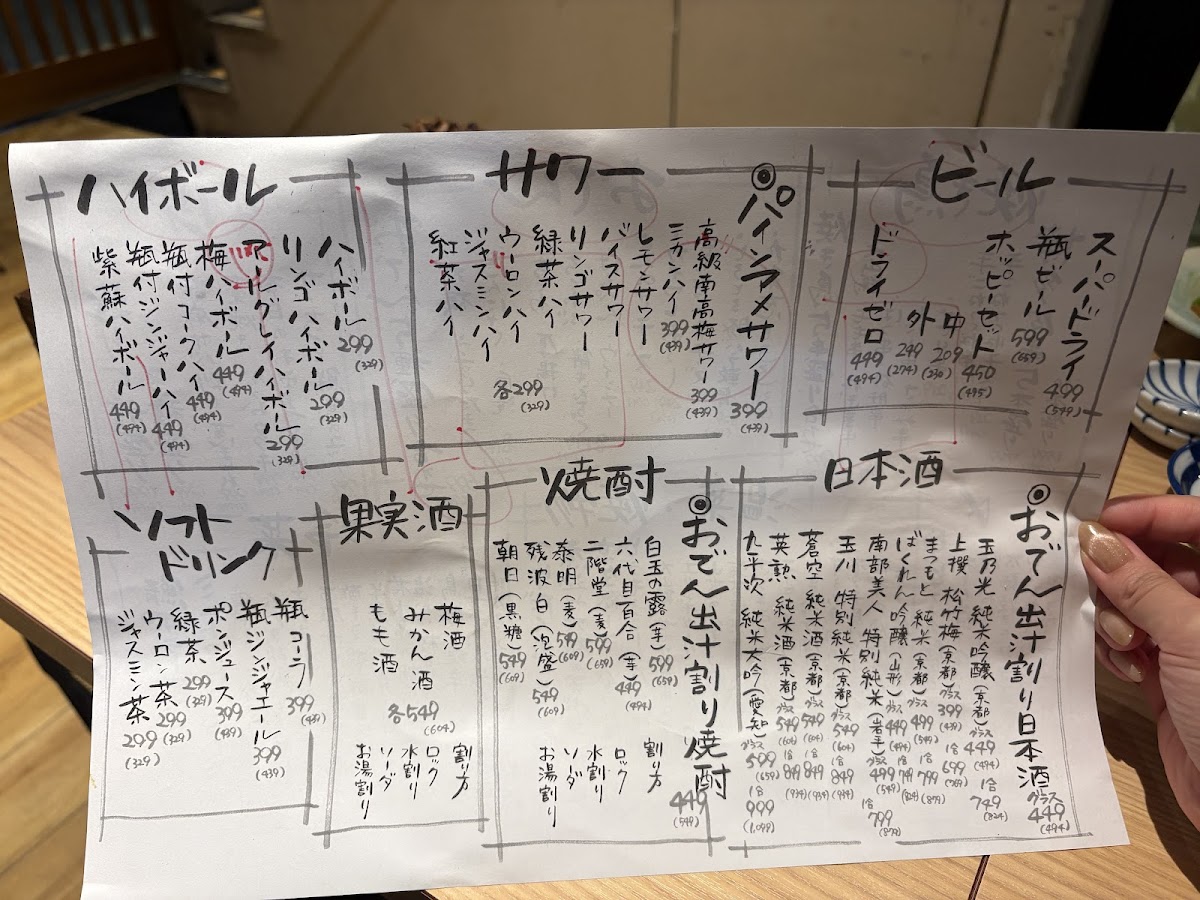 ビール
スーパードライ 499 (549)
瓶ビール 599 (659)
ホッピーセット 450 (495)
中 209 (230)
外 249 (274)
ドライゼロ 449 (494)
サワー
◎パインラメサワー 399 (439)
高級南高梅サワー 399 (439)
ミカンハイ 399 (439)
レモンサワー
バイスサワー
リンゴサワー
緑茶ハイ
ウーロンハイ
ジャスミンハイ
紅茶ハイ
各299 (329)
ハイボール
ハイボール 299 (329)
リンゴハイボール 299 (329)
アールグレイハイボール 299 (329)
梅ハイボール 449 (494)
瓶付コークハイ 449 (494)
瓶付ジンジャーハイ 449 (494)
紫蘇ハイボール 449 (494)
日本酒
◎おでん出汁割り日本酒 グラス 449 (494)
玉乃光 純米吟醸(京都) グラス 449 (494) 1合 749 (824)
上撰 松竹梅(京都) グラス 399 (439) 1合 699 (769)
まつもと 純米(京都) グラス 499 (549) 1合 799 (879)
ばくれん 吟醸(山形) グラス 449 (494) 1合 749 (824)
南部美人 特別純米(岩手) グラス 499 (549) 1合 799 (879)
玉川 特別純米(京都) グラス 549 (604) 1合 849 (934)
蒼空 純米酒(京都) グラス 549 (604) 1合 849 (934)
英勲 純米酒(京都) グラス 549 (604) 1合 849 (934)
九平次 純米大吟(愛知) グラス 599 (659) 1合 999 (1,099)
焼酎
◎おでん出汁割り焼酎 449 (549)
白玉の露(芋) 599 (659)
六代目百合(芋) 449 (494)
二階堂(麦) 599 (659)
泰明(麦) 549 (609)
残波 白(泡盛) 549 (609)
朝日(黒糖) 549 (609)
割り方
ロック
水割り
ソーダ
お湯割り
果実酒
梅酒
みかん酒
もも酒
各549 (604)
割り方
ロック
水割り
ソーダ
お湯割り
ソフト
ドリンク
瓶コーラ 399 (439)
瓶ジンジャエール 399 (439)
ポンジュース 399 (439)
緑茶 299 (329)
ウーロン茶 299 (329)
ジャスミン茶 299 (329)